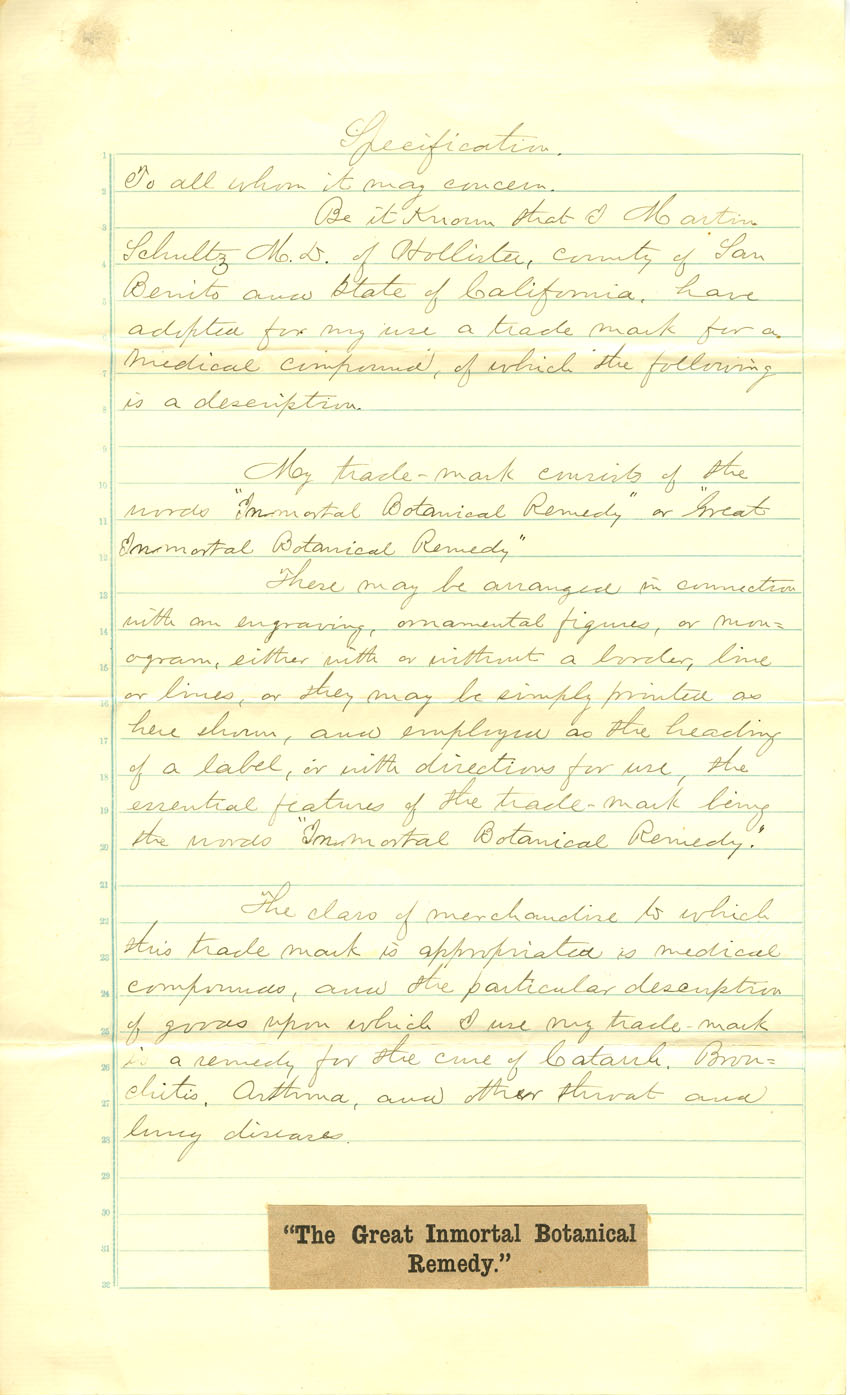 Specification.
To all whom it may concern.
Be it Known that I Martin
Schultz M.D. of Hollister, county of San
Benito and State of California, have
adopted for my use a trade mark for a
medical compound, of which the following
is a description.
My trade-mark consists of the
words "Inmortal Botanical Remedy" or "Great
Inmortal Botanical Remedy"
These may be arranged in connection
with an engraving, ornamental figures, or mon=
ogram, either with or without a border, line
or lines, or they may be simply printed as
here shown, and employed as the heading
of a label, or with directions for use, the
essential features of the trade-mark being
the words "Inmortal Botanical Remedy."
The class of merchandise to which
this trade mark is appropriated is medical
compounds, and the particular description
of goods upon which I use my trade-mark
is a remedy for the cure of Catarrh, Bron=
chitis, Asthma, and other throat and
lung diseases.
"The Great Inmortal Botanical
Remedy."